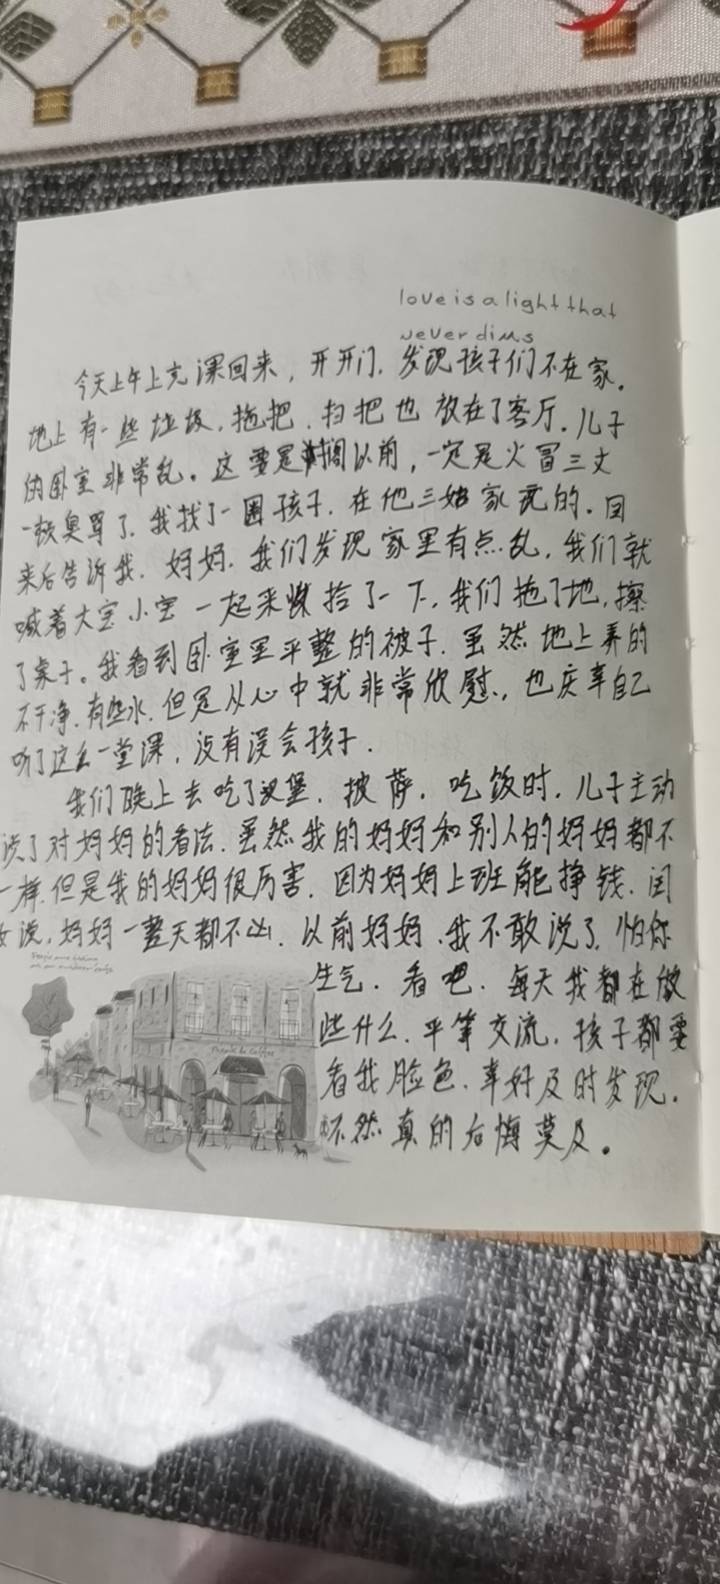 love is a light that
never dims
今天上午上完课回来，开开门，发现孩子们不在家。
地上有一些垃圾，拖把、扫把也放在了客厅，儿子
的卧室非常乱。这要是时间以前，一定是火冒三丈
一顿臭骂了，我找了一圈孩子，在他三姑家玩的。回
来后告诉我，妈妈，我们发现家里有点乱，我们就
喊着大宝小宝一起来收拾了一下，我们拖了地，擦
了桌子。我看到卧室里平整的被子，虽然地上弄的
不干净，有些水，但是从心中就非常欣慰，也庆幸自己
听了这么一堂课，没有误会孩子。
我们晚上去吃了汉堡、披萨，吃饭时，儿子主动
谈了对妈妈的看法，虽然我的妈妈和别人的妈妈都不
一样，但是我的妈妈很厉害，因为妈妈上班能挣钱，闺
女说，妈妈一整天都不凶，以前妈妈，我不敢说了，怕你
生气，看吧，每天我都在做
些什么，平等交流，孩子都要
看我脸色，幸好及时发现，
不然真的后悔莫及。
Thanks to Coffee